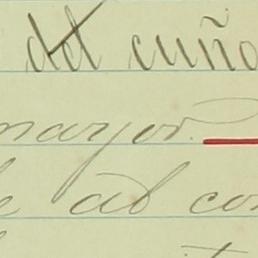 del cuño
mayor.
e al con